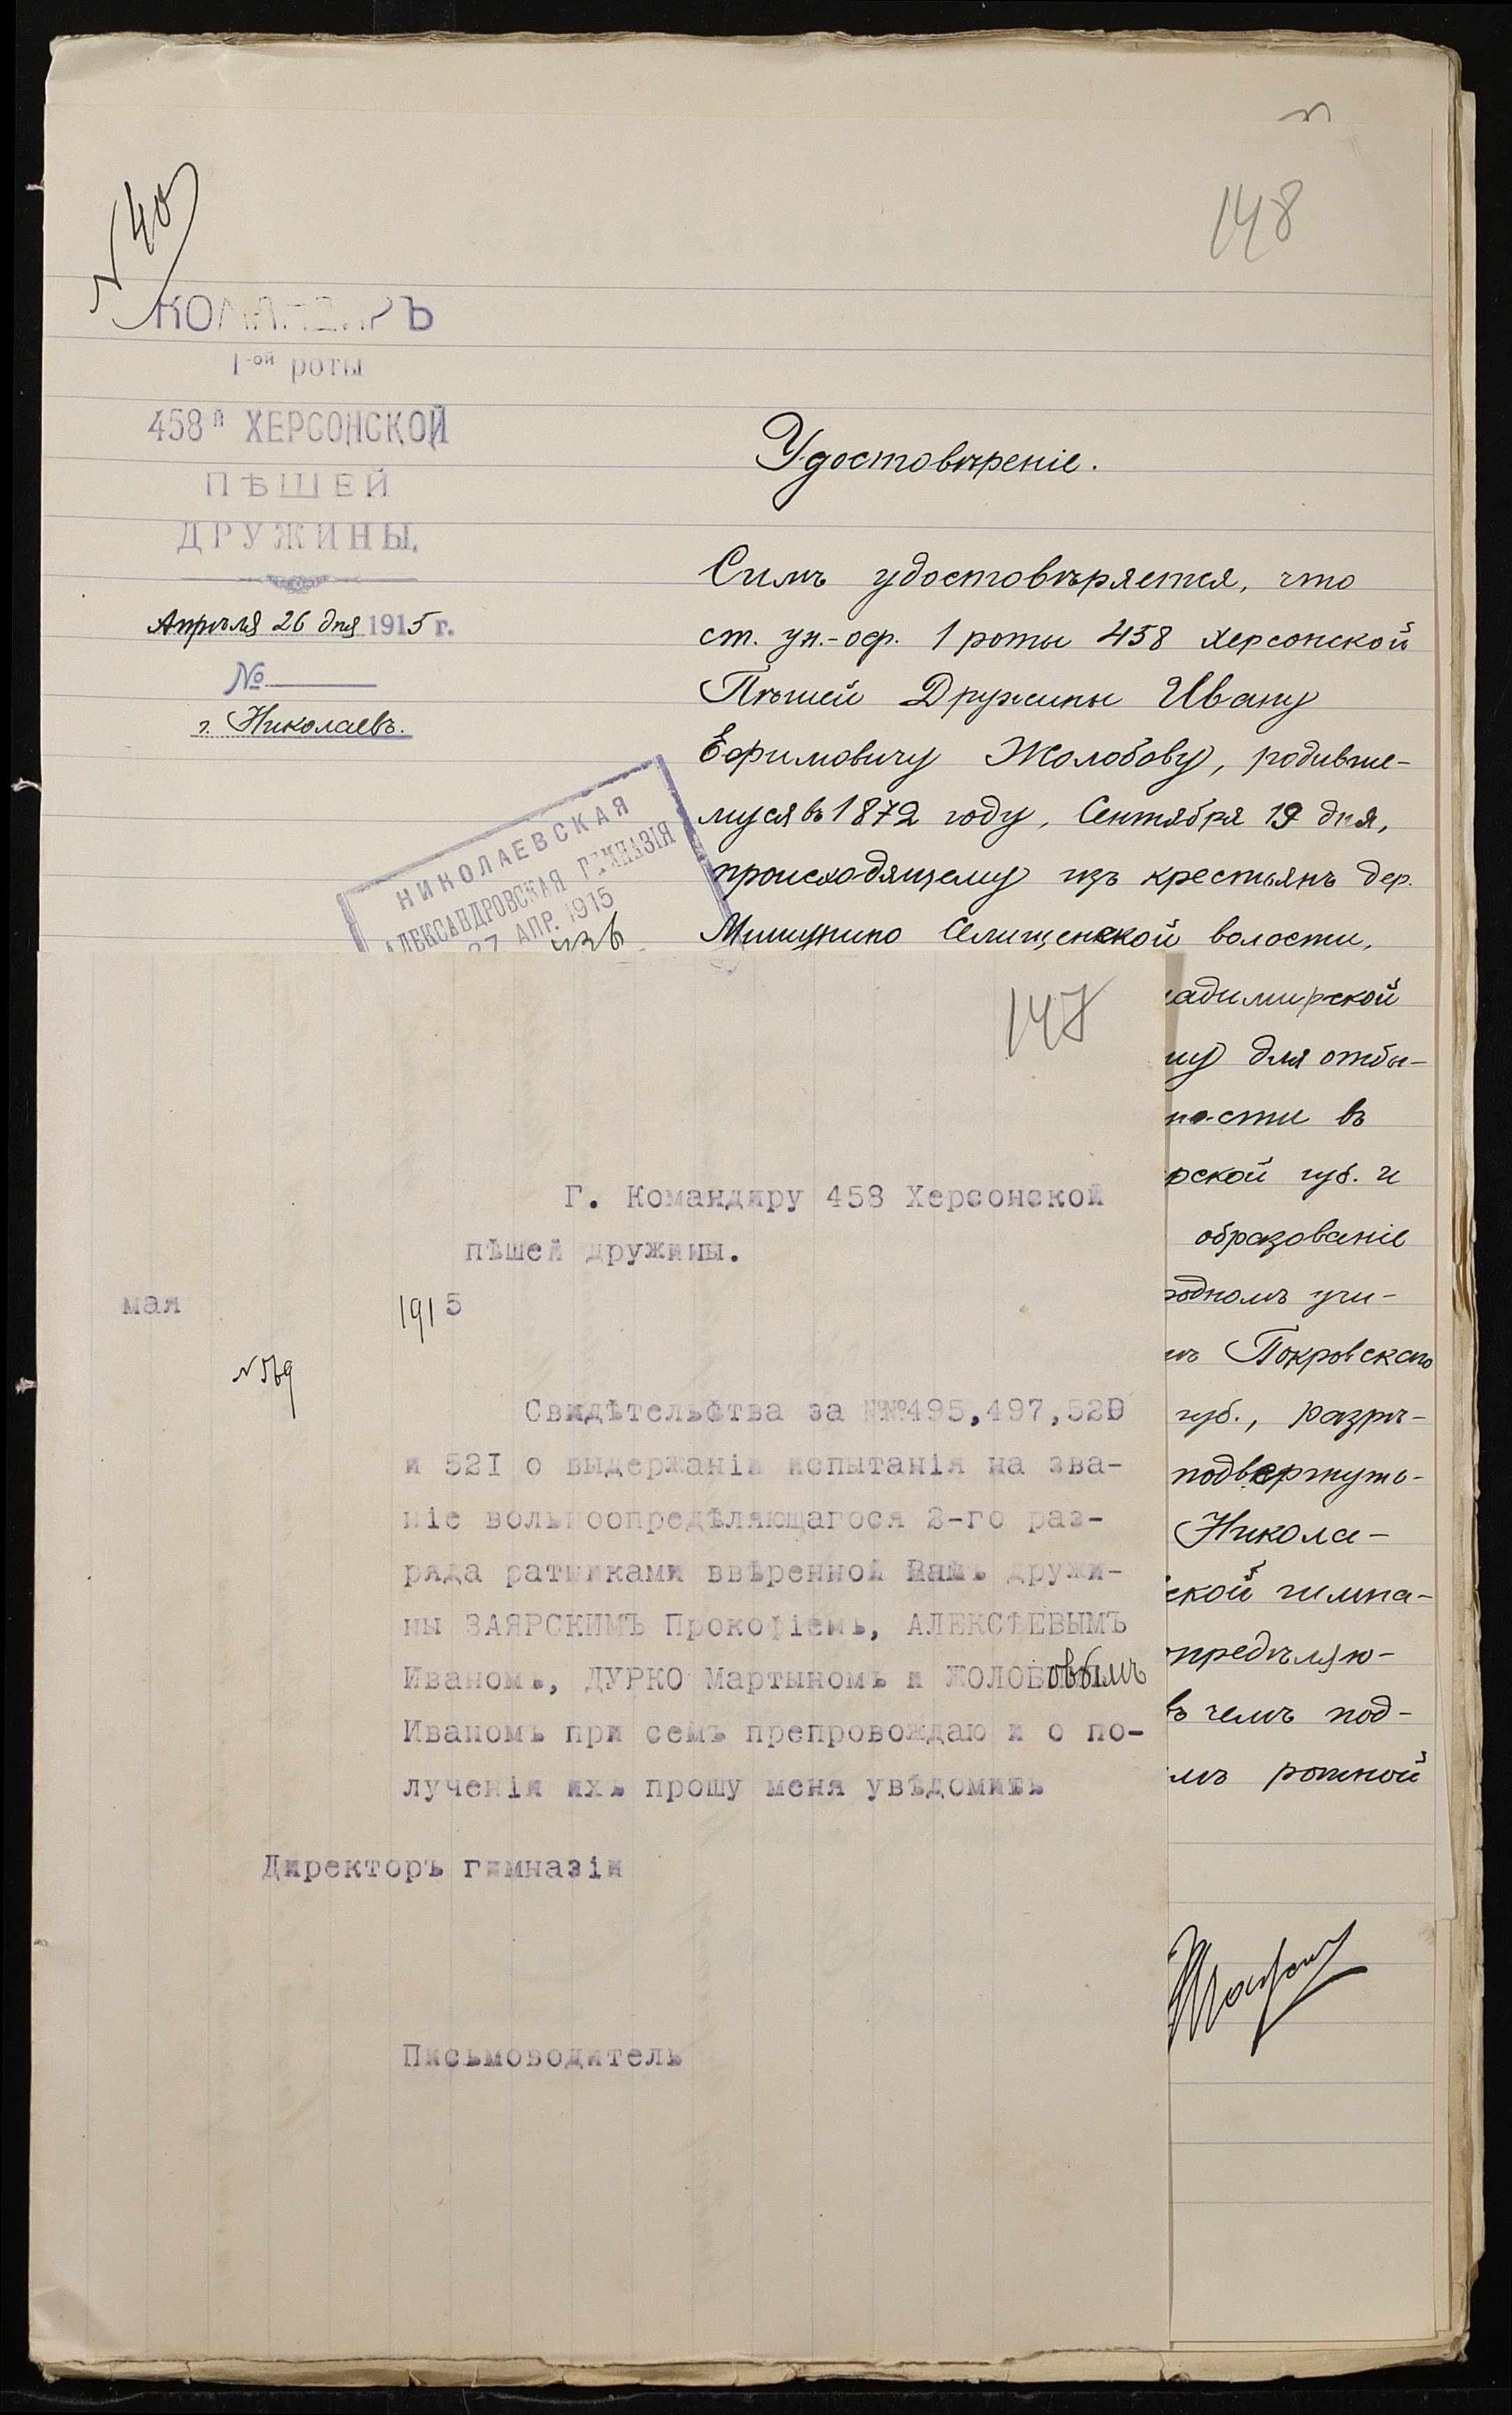 148
N 40
КОМАНДИРЪ
1-ой роты
458й ХЕРСОНСКОЙ
ПѢШЕЙ
ДРУЖИНЫ.
Апрѣля 26 дня 1915 г.
№
г. Николаевъ.
НИКОЛАЕВСКАЯ
АЛЕКСАНДРОВСКАЯ ГИМНАЗІЯ
27 АПР. 1915
Удостовѣреніе.
Симъ удостовѣряется, что
ст. ун.-оф. 1 роты 458 Херсонской
Пѣшей Дружины Ивану
Ефимовичу Жолобову, родивше-
муся въ 1872 году, Сентября 19 дня,
происходящему изъ крестьянъ дер.
Мишунино Селищенской волости,
адимирской
му для отбы-
ности въ
рской губ. и
образованіе
родномъ учи-
мъ Покровскаго
губ., разрѣ-
подвергнуть-
Никола-
ской гимна-
предѣляю-
въ чемъ под-
мъ ротной
147
Г. Командиру 458 Херсонской
пѣшей дружины.
мая 1915
N 569
Свидѣтельства за №№495,497,520
и 52I о выдержаніи испытанія на зва-
ніе вольноопредѣляющагося 2-го раз-
ряда ратниками ввѣренной Вамъ дружи-
ны ЗАЯРСКИМЪ Прокофіемъ, АЛЕКСѢЕВЫМЪ
Иваномъ, ДУРКО Мартыномъ и ЖОЛОБовымъ
Иваномъ при семъ препровождаю и о по-
лученіи ихъ прошу меня увѣдомить
Директоръ гимназіи
Письмоводитель